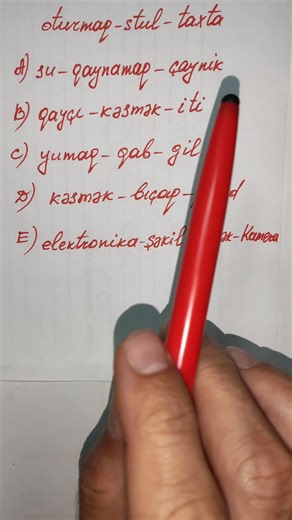 oturmaq-stul-taxta
A) su-qaynamaq-çaynik
B) qayçı-kəsmək-iti
C) yumaq-qab-gil
D) kəsmək-bıçaq-
E) elektronika-şəkil -Kamera